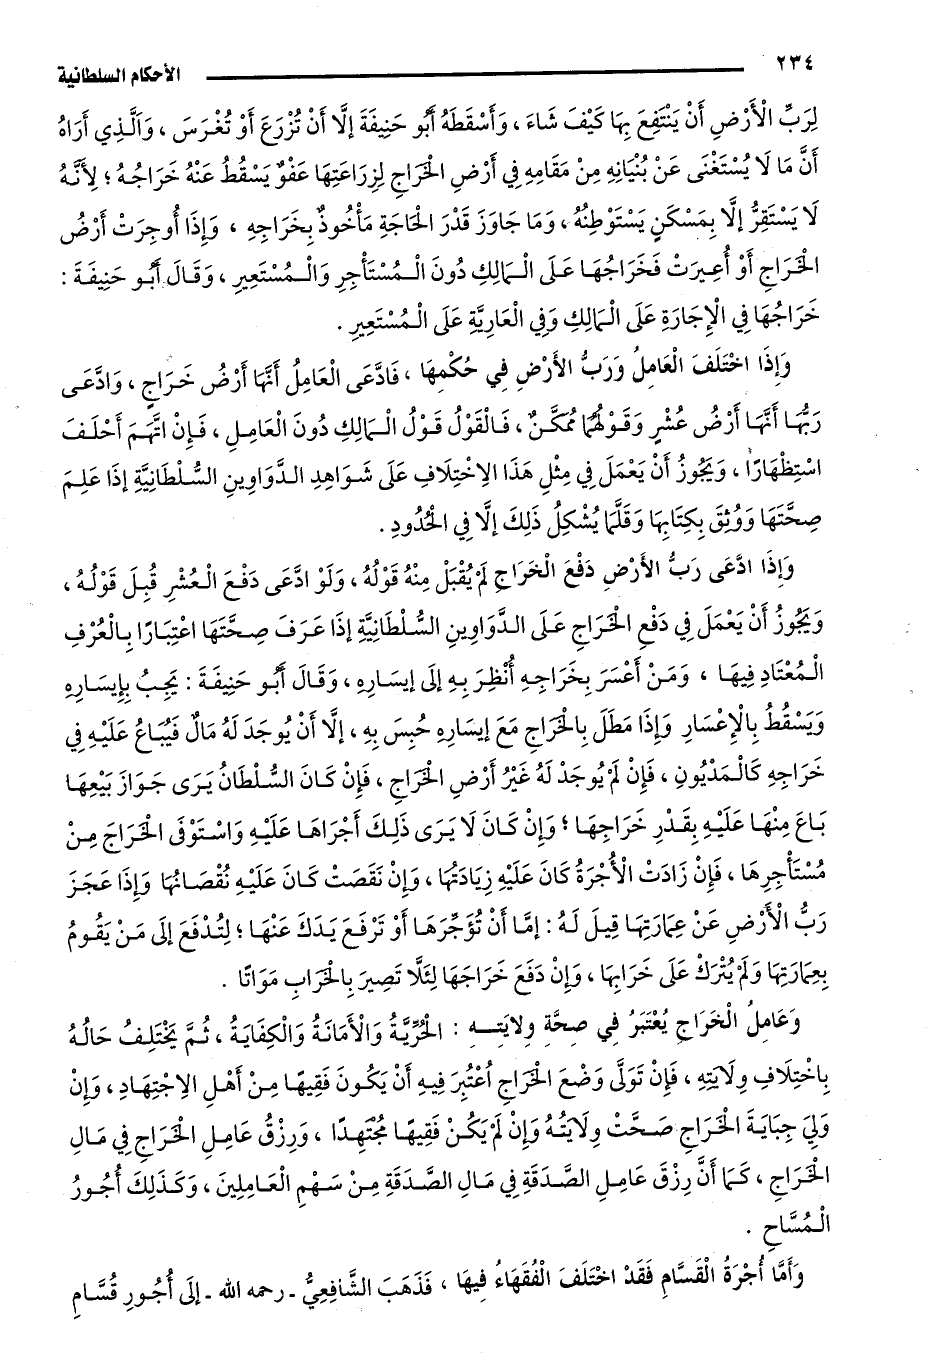 ٢٣٤ الأحكام السلطانية
لِرَبِّ الْأَرْضِ أَنْ يَنْتَفِعَ بِهَا كَيْفَ شَاءَ ، وَأَسْقَطَهُ أَبُو حَنِيفَةَ إلَّا أَنْ تُزْرَعَ أَوْ تُغْرَسَ ، وَاَلَّذِي أَرَاهُ
أَنَّ مَا لَا يُسْتَغْنَى عَنْ بُنْيَانِهِ مِنْ مَقَامِهِ فِي أَرْضِ الْخَرَاجِ لِزِرَاعَتِهَا عَفْوٌ يَسْقُطُ عَنْهُ خَرَاجُهُ ؛ لِأَنَّهُ
لَا يَسْتَقِرُّ إلَّا بِمَسْكَنٍ يَسْتَوْطِنُهُ ، وَمَا جَاوَزَ قَدْرَ الْحَاجَةِ مَأْخُوذٌ بِخَرَاجِهِ ، وَإِذَا أُوجِرَتْ أَرْضُ
الْخَرَاجِ أَوْ أُعِيرَتْ فَخَرَاجُهَا عَلَى الْمَالِكِ دُونَ الْمُسْتَأْجِرِ وَالْمُسْتَعِيرِ ، وَقَالَ أَبُو حَنِيفَةَ :
خَرَاجُهَا فِي الْإِجَارَةِ عَلَى الْمَالِكِ وَفِي الْعَارِيَّةِ عَلَى الْمُسْتَعِيرِ .
وَإِذَا اخْتَلَفَ الْعَامِلُ وَرَبُّ الأَرْضِ فِي حُكْمِهَا ، فَادَّعَى الْعَامِلُ أَنَّهَا أَرْضُ خَرَاجٍ ، وَادَّعَى
رَبُّهَا أَنَّهَا أَرْضُ عُشْرٍ وَقَوْلُهُمَا مُمْكِنٌ ، فَالْقَوْلُ قَوْلُ الْمَالِكِ دُونَ الْعَامِلِ ، فَإِنْ اتُّهِمَ أُحْلِفَ
اسْتِظْهَارًا ، وَيَجُوزُ أَنْ يَعْمَلَ فِي مِثْلِ هَذَا الِاخْتِلَافِ عَلَى شَوَاهِدِ الدَّوَاوِينِ السُّلْطَانِيَّةِ إذَا عَلِمَ
صِحَّتَهَا وَوُثِقَ بِكِتَابِهَا وَقَلَّمَا يُشْكِلُ ذَلِكَ إلَّا فِي الْحُدُودِ .
وَإِذَا ادَّعَى رَبُّ الأَرْضِ دَفْعَ الْخَرَاجِ لَمْ يُقْبَلْ مِنْهُ قَوْلُهُ ، وَلَوْ ادَّعَى دَفْعَ الْعُشْرِ قُبِلَ قَوْلُهُ ،
وَيَجُوزُ أَنْ يَعْمَلَ فِي دَفْعِ الْخَرَاجِ عَلَى الدَّوَاوِينِ السُّلْطَانِيَّةِ إذَا عَرَفَ صِحَّتَهَا اعْتِبَارًا بِالْعُرْفِ
الْمُعْتَادِ فِيهَا ، وَمَنْ أَعْسَرَ بِخَرَاجِهِ أُنْظِرَ بِهِ إلَى إيسَارِهِ ، وَقَالَ أَبُو حَنِيفَةَ : يَجِبُ بِإِيسَارِهِ
وَيَسْقُطُ بِالْإِعْسَارِ وَإِذَا مَطَلَ بِالْخَرَاجِ مَعَ إيسَارِهِ حُبِسَ بِهِ ، إلَّا أَنْ يُوجَدَ لَهُ مَالٌ فَيُبَاعُ عَلَيْهِ فِي
خَرَاجِهِ كَالْمَدْيُونِ ، فَإِنْ لَمْ يُوجَدْ لَهُ غَيْرُ أَرْضِ الْخَرَاجِ ، فَإِنْ كَانَ السُّلْطَانُ يَرَى جَوَازَ بَيْعِهَا
بَاعَ مِنْهَا عَلَيْهِ بِقَدْرِ خَرَاجِهَا ؛ وَإِنْ كَانَ لَا يَرَى ذَلِكَ أَجَّرَاهَا عَلَيْهِ وَاسْتَوْفَى الْخَرَاجَ مِنْ
مُسْتَأْجِرِهَا ، فَإِنْ زَادَتْ الْأُجْرَةُ كَانَ عَلَيْهِ زِيَادَتُهَا ، وَإِنْ نَقَصَتْ كَانَ عَلَيْهِ نُقْصَانُهَا وَإِذَا عَجَزَ
رَبُّ الْأَرْضِ عَنْ عِمَارَتِهَا قِيلَ لَهُ : إمَّا أَنْ تُؤَجِّرَهَا أَوْ تَرْفَعَ يَدَكَ عَنْهَا ؛ لِتُدْفَعَ إلَى مَنْ يَقُومُ
بِعِمَارَتِهَا وَلَمْ يُتْرَكْ عَلَى خَرَابِهَا ، وَإِنْ دَفَعَ خَرَاجَهَا لِئَلَّا تَصِيرَ بِالْخَرَابِ مَوَاتًا .
وَعَامِلُ الْخَرَاجِ يُعْتَبَرُ فِي صِحَّةِ وِلايَتِهِ : الْحُرِّيَّةُ وَالْأَمَانَةُ وَالْكِفَايَةُ ، ثُمَّ يَخْتَلِفُ حَالُهُ
بِاخْتِلَافِ وِلَايَتِهِ ، فَإِنْ تَوَلَّى وَضْعَ الْخَرَاجِ اُعْتُبِرَ فِيهِ أَنْ يَكُونَ فَقِيهًا مِنْ أَهْلِ الِاجْتِهَادِ ، وَإِنْ
وَلِيَ جِبَايَةَ الْخَرَاجِ صَحَّتْ وِلَايَتُهُ وَإِنْ لَمْ يَكُنْ فَقِيهًا مُجْتَهِدًا ، وَرِزْقُ عَامِلِ الْخَرَاجِ فِي مَالِ
الْخَرَاجِ ، كَمَا أَنَّ رِزْقَ عَامِلِ الصَّدَقَةِ فِي مَالِ الصَّدَقَةِ مِنْ سَهْمِ الْعَامِلِينَ ، وَكَذَلِكَ أُجُورُ
الْمُسَّاحِ .
وَأَمَّا أُجْرَةُ الْقَسَّامِ فَقَدْ اخْتَلَفَ الْفُقَهَاءُ فِيهَا ، فَذَهَبَ الشَّافِعِيُّ ـ رحمه الله ـ إلَى أُجُورِ قُسَّامِ